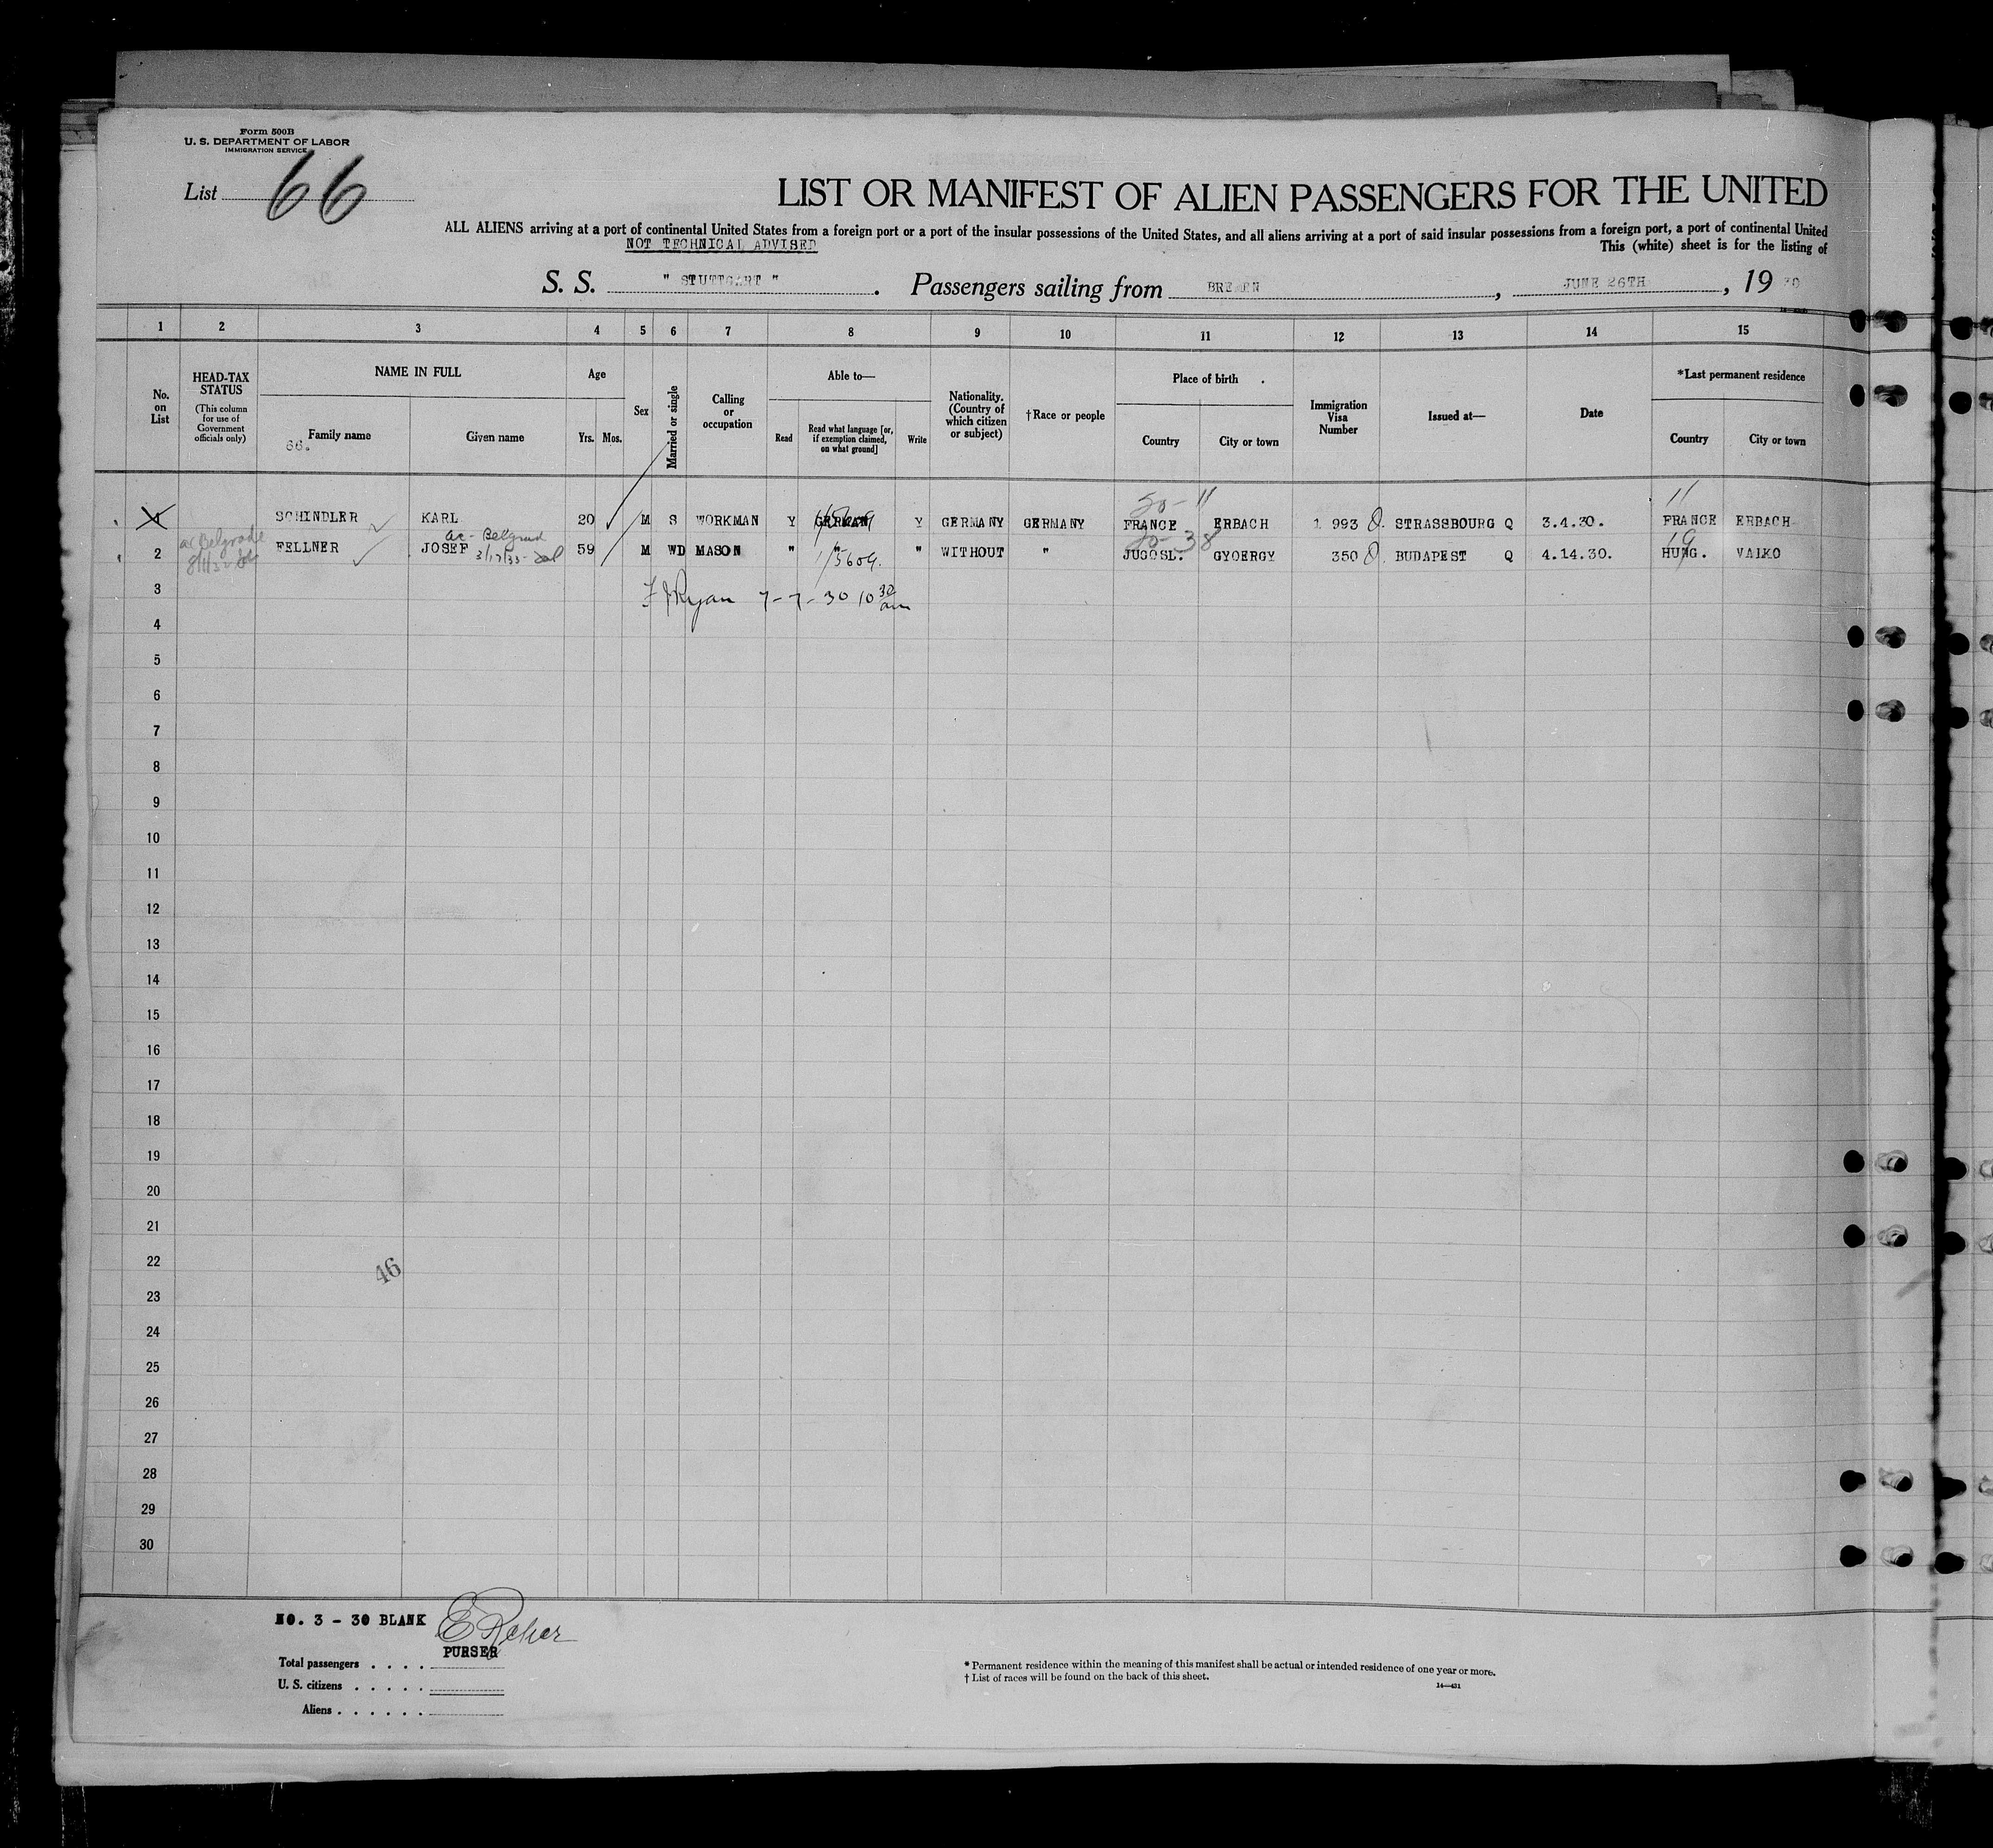 Form 500B
U. S. DEPARTMENT OF LABOR
IMMIGRATION SERVICE
List 66
LIST OR MANIFEST OF ALIEN PASSENGERS FOR THE UNITED
ALL ALIENS arriving at a port of continental United States from a foreign port or a port of the insular possessions of the United States, and all aliens arriving at a port of said insular possessions from a foreign port, a port of continental United
NOT TECHNICAL ADVISED
This (white) sheet is for the listing of
S. S. " STUTTGART " . Passengers sailing from BREMEN , JUNE 26TH , 19 30
1 2 3 4 5 6 7 8 9 10 11 12 13 14 15
No. on List
HEAD-TAX STATUS
(This column for use of Government officials only)
NAME IN FULL
66. Family name
Given name
Age
Yrs. Mos.
Sex
Married or single
Calling or occupation
Able to—
Read
Read what language [or, if exemption claimed, on what ground]
Write
Nationality. (Country of which citizen or subject)
†Race or people
Place of birth
Country
City or town
Immigration Visa Number
Issued at—
Date
*Last permanent residence
Country
City or town
11 11
1 SCHINDLER KARL 20 M S WORKMAN Y GERMAN Y GERMANY GERMANY FRANCE ERBACH 1 993 STRASSBOURG Q 3.4.30. FRANCE ERBACH
ac Belgrade ac - Belgrad 38 19
2 FELLNER JOSEF 3/17/33 59 M WD MASON " " " WITHOUT " JUGOSL. GYOERGY 350 BUDAPEST Q 4.14.30. HUNG. VAIKO
3 Ryan 7-7-30 10 30 am
4
5
6
7
8
9
10
11
12
13
14
15
16
17
18
19
20
21
22
46
23
24
25
26
27
28
29
30
NO. 3 - 30 BLANK
PURSER
Total passengers . . . .
U. S. citizens . . . . .
Aliens . . . . . .
* Permanent residence within the meaning of this manifest shall be actual or intended residence of one year or more.
† List of races will be found on the back of this sheet.
14—431